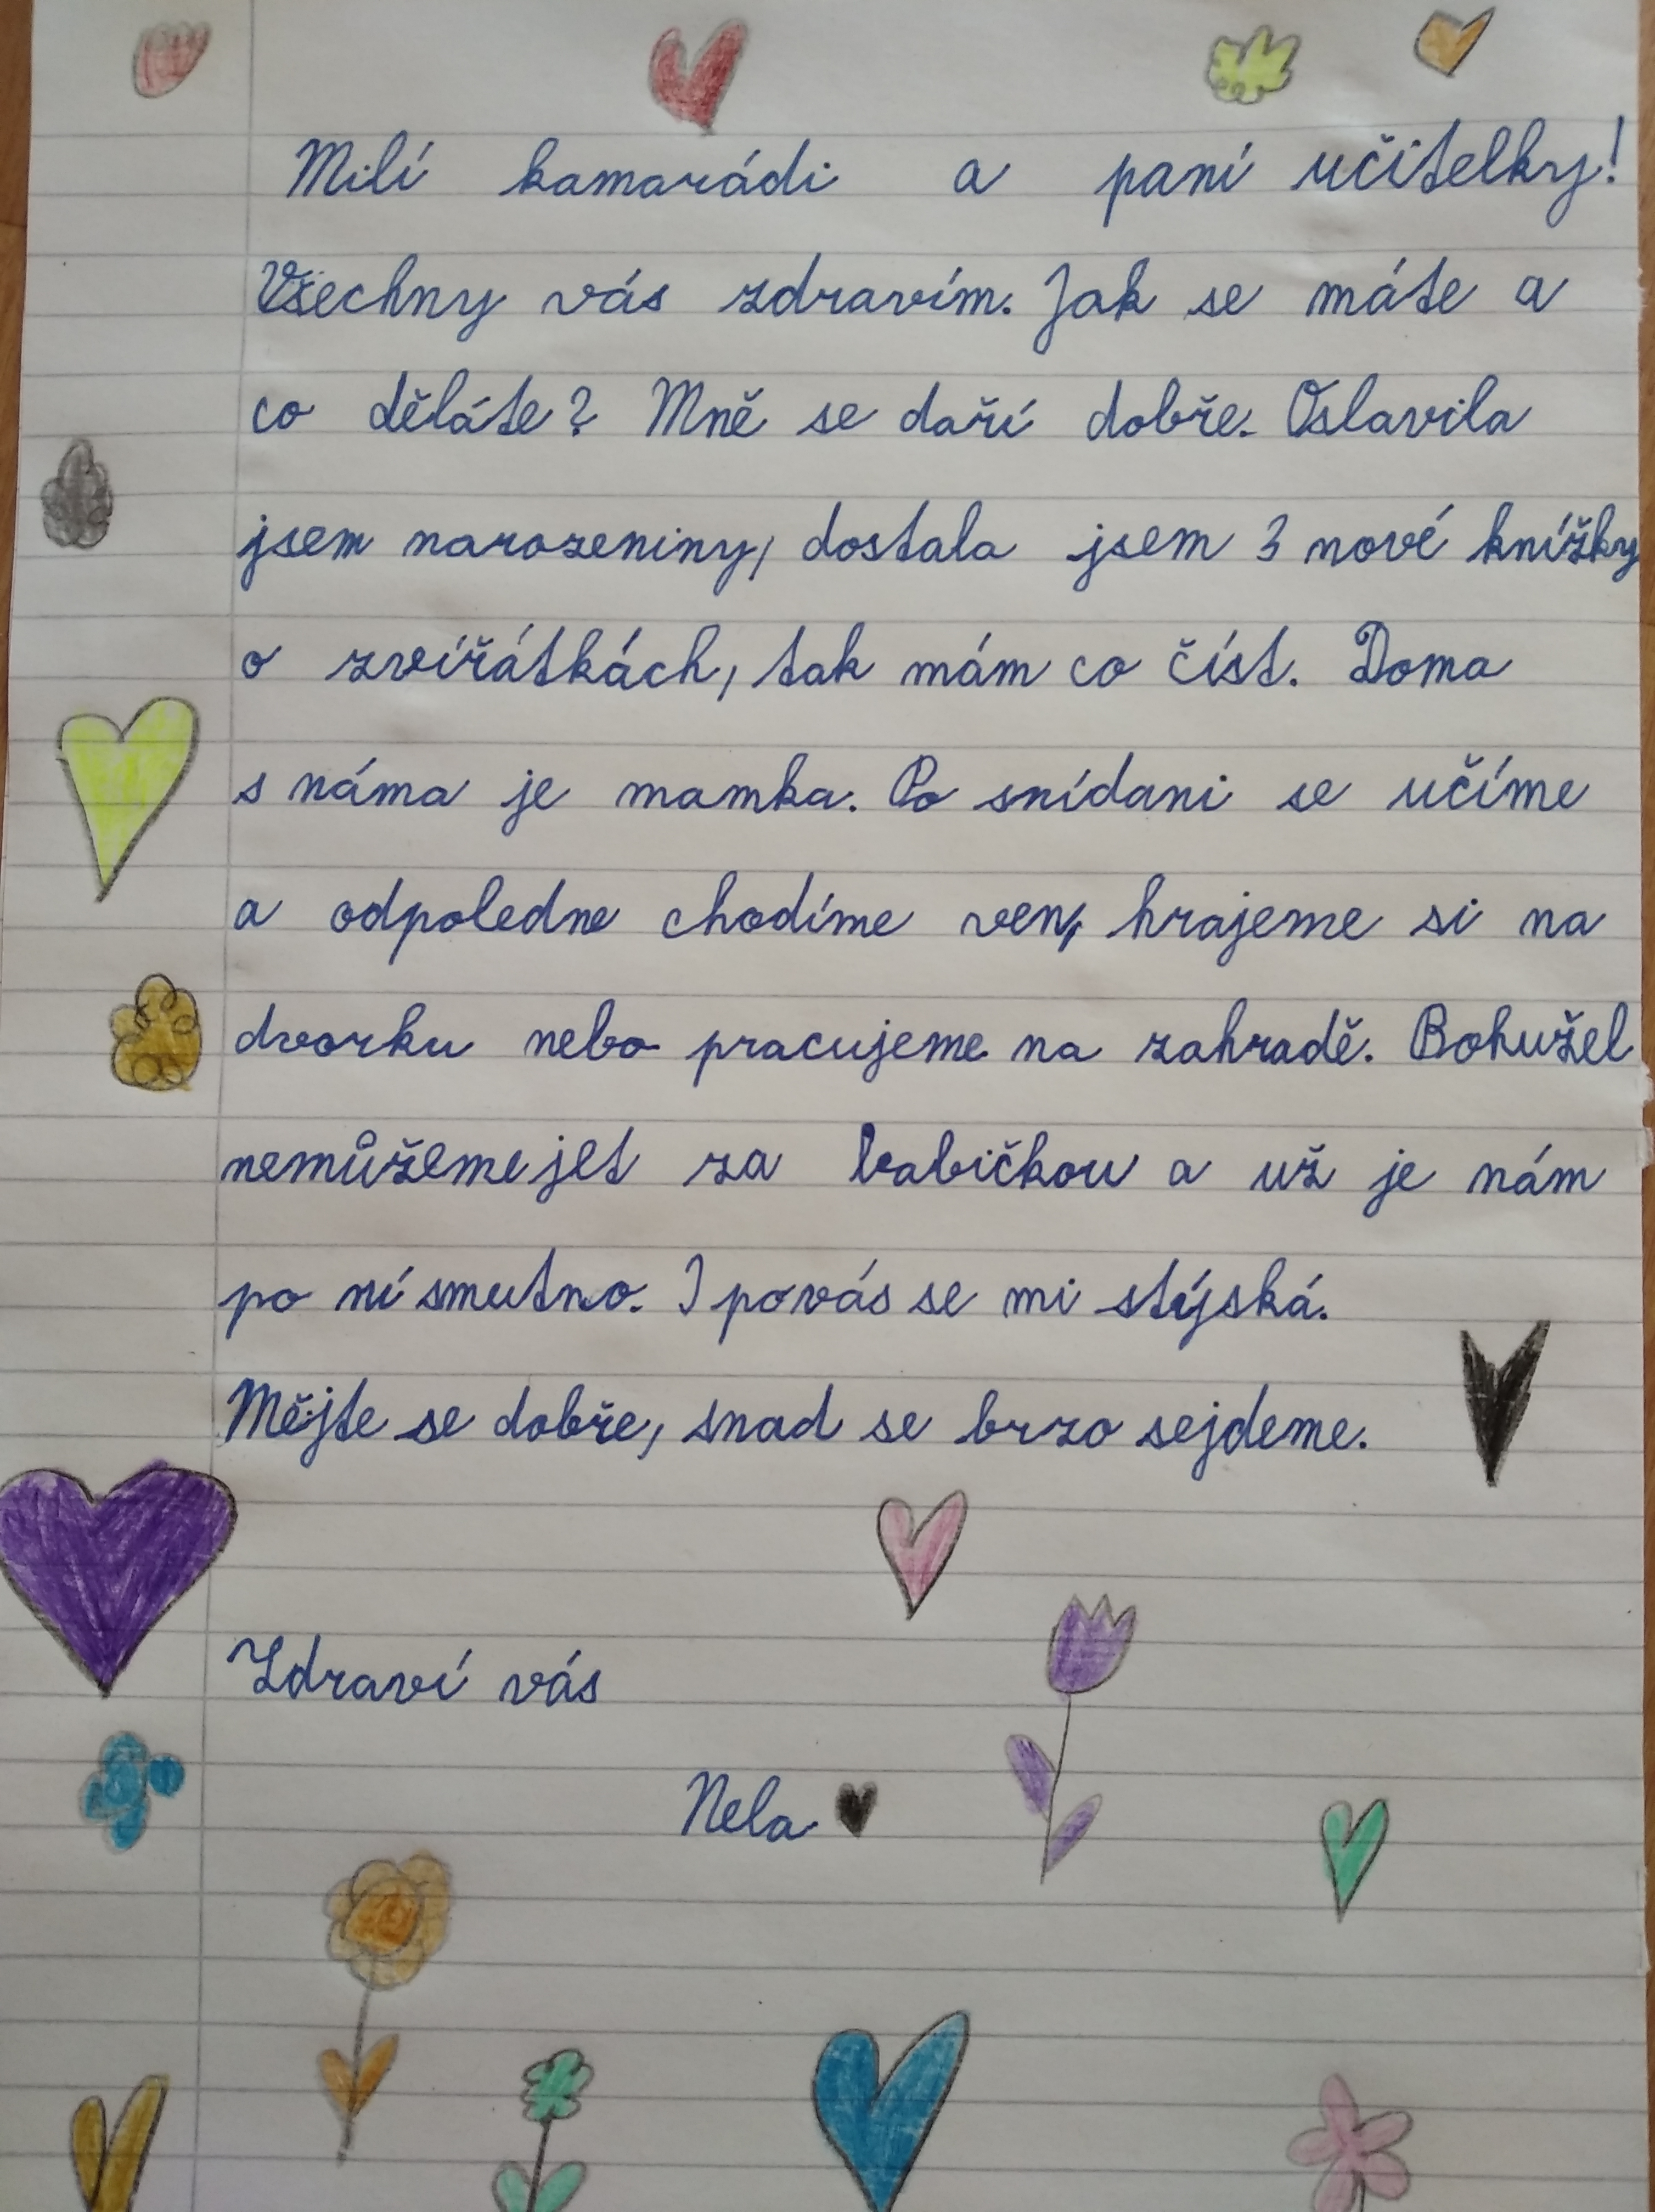 Milí kamarádi a paní učitelky!
Všechny vás zdravím. Jak se máte a
co děláte? Mně se daří dobře. Oslavila
jsem narozeniny, dostala jsem 3 nové knížky
o zvířátkách, tak mám co číst. Doma
s náma je mamka. Po snídani se učíme
a odpoledne chodíme ven, hrajeme si na
dvorku nebo pracujeme na zahradě. Bohužel
nemůžeme jet za babičkou a už je nám
po ní smutno. I po vás se mi stýská.
Mějte se dobře, snad se brzo sejdeme.
Zdraví vás
Nela